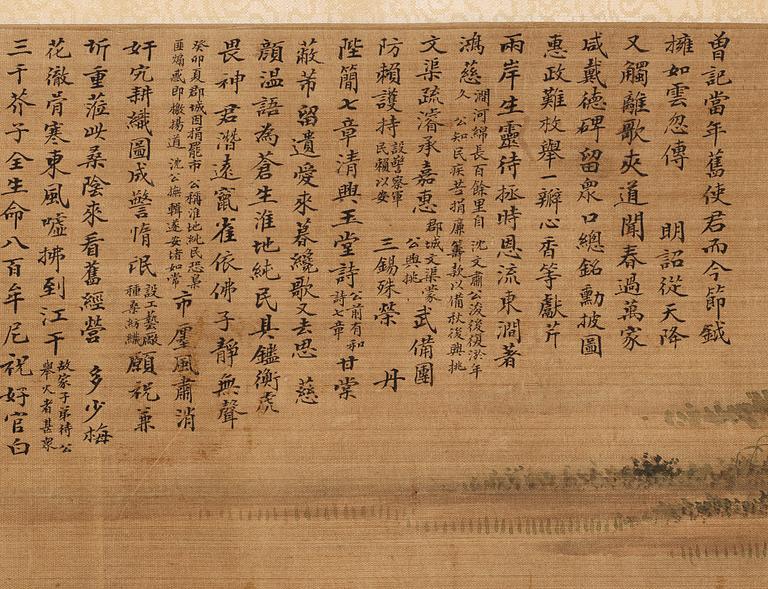 曾記當年舊使君而今節鉞
擁如雲忽傳 明詔從天降
又觸離歌夾道聞春過萬家
咸戴德碑留衆口總銘勳披圖
惠政難枚舉一瓣心香等獻芹
兩岸生靈待拯時恩流東澗著
鴻慈 澗河綿長百餘里自 沈文肅公浚後復淤年
久 公知民疾苦捐廉籌款以備秋後興挑
文渠疏濬承嘉惠 郡城文渠蒙
公興挑 武備團
防賴護持 設警察軍
民賴以安 三錫殊榮 丹
陛簡七章清興玉堂詩 公前有和
詩七章 甘棠
蔽芾留遺愛來暮纔歌又去思 慈
顏溫語為蒼生淮地純民具鑑衡虎
畏神君潛遠竄雀依佛子靜無聲
癸卯夏郡城因捐罷市 公稱淮地純民恐棗
匪煽惑即檄揚道 沈公撫輯遂安堵如常 市廛風肅消
奸宄耕織圖成警惰氓 設工藝廠
種桑紡織 願祝兼
圻重蒞此桑陰來看舊經營 多少梅
花澈骨寒東風噓拂到江干 故家子弟待公
舉火者甚衆
三千芥子全生命八百牟尼祝好官白